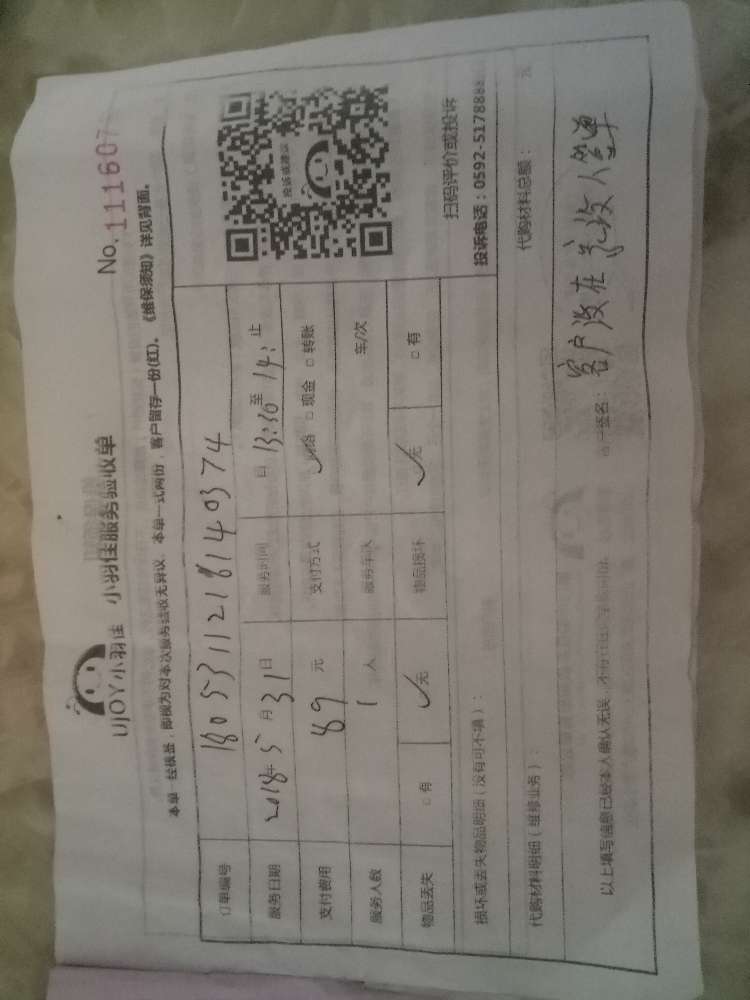 UJOY小羽佳 小羽佳服务验收单
No.111607
本单一经核签，即视为对本次服务验收无异议，本单一式两份，客户留存一份(红)。《维保须知》详见背面。
订单编号 180531121814 0374
服务日期 2018年5月31日 服务时间 日13:30至14: 止
支付费用 89元 支付方式 网络 □现金 □转账
服务人数 1人 服务车次 车/次
物品丢失 □有 ✓无 物品损坏 ✓无 □有
投诉或建议
扫码评价或投诉
投诉电话：0592-5178888
损坏或丢失物品明细（没有可不填）：
代购材料明细（维修业务）： 代购材料总额： 元
以上填写信息已经本人确认无误，
客户签名：客户没在家收人签单